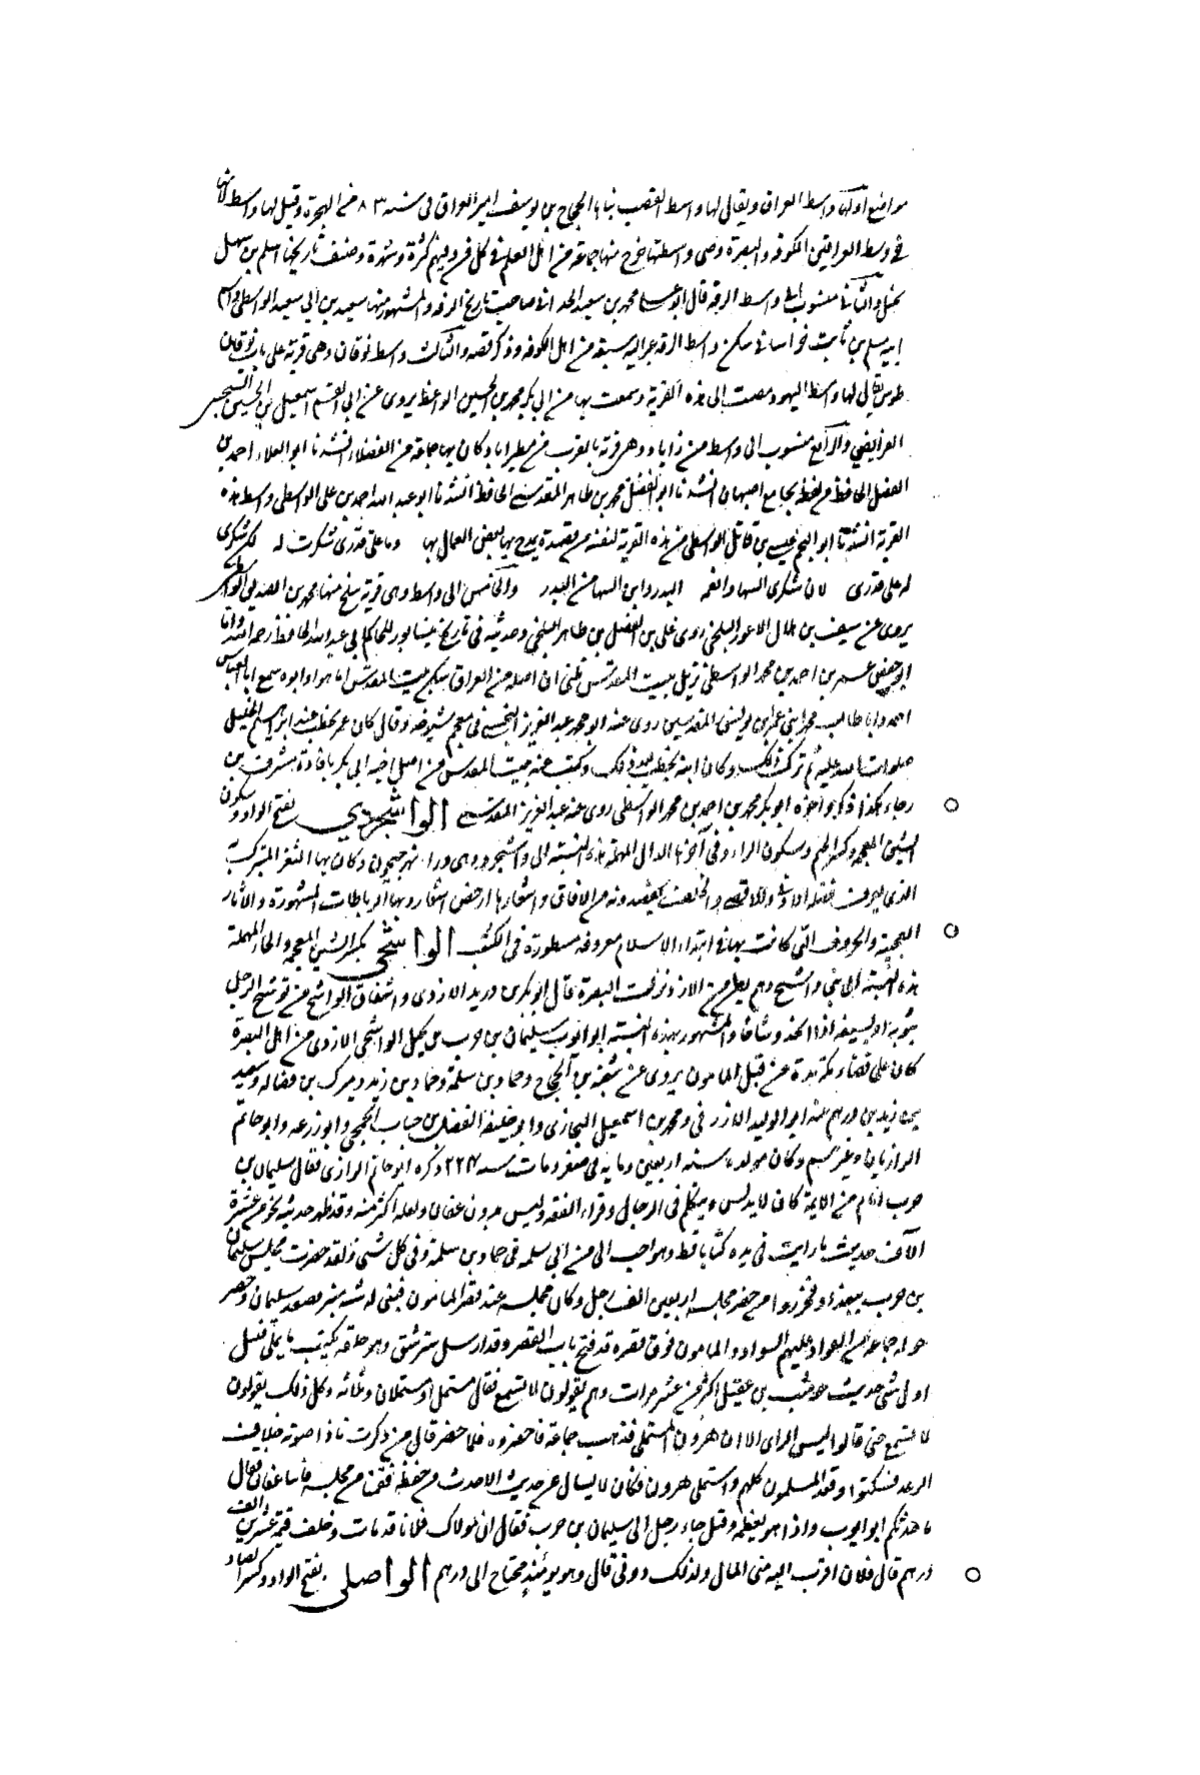 مواضع اولها واسط العراق ويقال لها واسط القصب بناها الحجاج بن يوسف امير العراق فى سنه ٨٣ من الهجرة وقيل لها واسط لانها
فى وسط العراقين الكوفه والبصرة وهى واسطتها خرج منها جماعة من اهل العلم فى كل فن وفيهم كثرة وشهرة وصنف تاريخها اسلم بن سهل
بحشل والثانى منسوب الى واسط الرقه قال ابو على محمد بن سعيد الحرانى صاحب تاريخ الرقه والمشهور منها سعيد بن ابى سعيد الواسطى واسم
ابيه مسلم بن ثابت خراسانى سكن واسط الرقه من اهل الكوفه وذكر قصه والثالث واسط نوقان وهى قرية على باب نوقان
طوس يقال لها واسط اليهود مضيت الى هذه القرية وسمعت بها من ابى بكر محمد بن الحسين الواعظ يروى عن ابى القسم اسمعيل بن الحسين السنجبستى
الفرايضى والرابع منسوب الى واسط مرزاباد وهى قرية بالقرب من مطيراباد وكان بها جماعة من الفضلاء انشدنا ابو العلاء احمد بن
الفضل الحافظ من لفظه بجامع اصبهان انشدنا ابو الفضل محمد بن طاهر المقدسى الحافظ انشدنا ابو عبد الله احمد بن على الواسطى واسط هذه
القرية انشدنا ابو النجم عيسى بن فاتك الواسطى من هذه القرية لنفسه من قصيدة يمدح بها بعض العمال بها وما على قدرى شكرت له لكن شكرى
له على قدرى لان شكرى السها وانعمه البدر واين السها من البدر والخامس الى واسط وهى قرية ببلخ منها محمد بن الصديق الواسطى
يروى عن سيف بن هلال الاعور البلخى روى على بن الفضل بن طاهر البلخى وحديثه فى تاريخ نيسابور للحاكم ابى عبد الله الحافظ رحمه الله واما
ابو حفص عمر بن احمد بن محمد الواسطى نزيل بيت المقدس ظنى ان اصله من العراق سكن بيت المقدس اما هو او ابوه سمع ابا العباس
احمد وابا طالب محمد ابنى عمران بن يونس المقدسيين روى عنه ابو محمد عبد العزيز النخشبى فى معجم شيوخه وقال كان عمر يخطب عند ابرهيم الخليل
صلوات الله عليه ثم ترك ذلك وكان ابنه يخطب بعد ذلك وكتبت عنه ببيت المقدس من اصل اخيه ابى بكر بافادة مشرف بن
رجاء هكذا ذكره واخوه ابو بكر محمد بن احمد بن محمد الواسطى روى عنه عبد العزيز المقدسى الواشجردي بفتح الواو وسكون
الشين المعجمه وكسر الجيم وسكون الراء وفى آخرها الدال المهملة هذه النسبة الى واشجرد وهى وراء نهر جيحون وكان بها الثغر المتبرك به
الذى يعرف فضله الادانى والاقاصى يقصدونه من الافاق وارض شعارها الرباطات المشهورة والآثار
العجيبة والحروف التى كانت بها فى ابتداء الاسلام معروفه مسطورة فى الكتب الواشحي بكسر الشين المعجمه والحاء المهملة
هذه النسبة الى بنى واشح وهم بطن من الازد نزلت البصرة قال ابو بكر بن دريد الازدى واشتقاق الواشح من توشح الرجل
بثوبه او بسيفه اذا اتخذ وشاحا والمشهور بهذه النسبة ابو ايوب سليمان بن حرب بن بجيل الواشحى الازدى من اهل البصرة
كان على قضاء مكة مدة من قبل المامون يروى عن شعبه بن الحجاج وحماد بن سلمة وحماد بن زيد ومبرك بن فضاله وسعيد
بن زيد بن درهم عنه ابو الوليد الازرقى ومحمد بن اسمعيل البخارى وابو خليفه الفضل بن حباب الجمحى وابو زرعه وابو حاتم
الرازيان وغيرهم وكان مولده سنه اربعين ومايه فى صفر ومات سنه ٢٢٤ ذكره ابو حاتم الرازى فقال سليمان بن
حرب امام من الايمة كان لا يدلس ويتكلم فى الرجال وقراء الفقه وليس بدون عفان ولعله اكثر منه وقد ظهر حديثه نحو من عشرة
الآف حديث ما رايت فى يده كتابا قط وهو احب الى من ابى سلمه فى حماد بن سلمة وفى كل شى ولقد حضرت مجلس سليمان
بن حرب ببغداد فحزروا من حضر مجلسه اربعين الف رجل وكان مجلسه عند قصر المامون فبنى له شبه منبر فصعد سليمان وحضر
حوله جماعة من القواد عليهم السواد والمامون فوق قصره قد فتح باب القصر وقد ارسل ستر شق وهو خلفه يكتب ما يملى فسئل
اول شى حديث حوشب بن عقيل اكثر من عشر مرات وهم يقولون لا نسمع فقال مستملى او مستمليان وثلاثه وكل ذلك يقولون
لا نسمع حتى قالوا ليس الراى الا ان هرون المستملى فذهب جماعة فاحضروه فلما حضر قال من ذكرت فاذا صوته خلاف
الرعد فسكتوا وقعد المسلمون كلهم واستملى هرون فكان لا يسال عن حديث الا حدث من حفظه فقمنا من مجلسه فأتينا عفان فقال
ما حدثكم ابو ايوب واذا هو يعظمه وقيل جاء رجل الى سليمان بن حرب فقال ان مولاك فلانا قد مات وخلف قيمة عشرين الف
درهم قال فلان اقرب اليه منى المال ولذلك دونى قال وهو يومئذ محتاج الى درهم الواصلي بفتح الواو وكسر الصاد